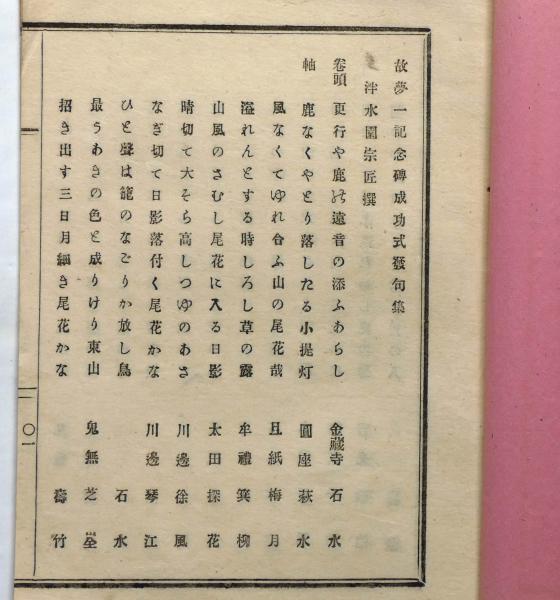 故夢一記念碑成功式發句集
泮水園宗匠撰
卷頭 更行や鹿の遠音の添ふあらし 金藏寺 石水
軸 鹿なくやとり落したる小提灯 圓座 萩水
風なくてゆれ合ふ山の尾花哉 且紙 梅月
溢れんとする時しろし草の露 牟禮 箕柳
山風のさむし尾花に入る日影 太田 探花
晴切て大そら高しつゆのあさ 川邊 徐風
なぎ切て日影落付く尾花かな 川邊 琴江
ひと聲は籠のなごりか放し鳥 石水
最うあきの色と成りけり東山 鬼無 芝峑
招き出す三日月細き尾花かな 壽竹
一〇